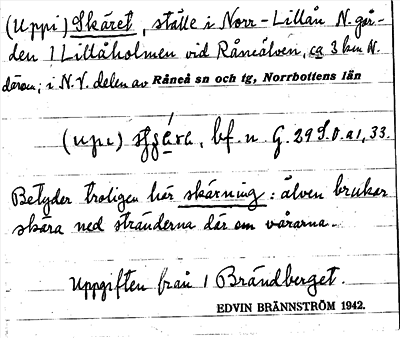 (Uppi) Skäret, ställe i Norr-Lillån N. går-
den 1 Lillåholmen vid Råneälven, ca 3 km N.
därom; i N.V. delen av Råneå sn och tg, Norrbottens län
bf. n. G. 29 S.O. a1, 33.
Betyder troligen här skärning: älven brukar
skära ned stränderna där om vårarna.
Uppgiften från 1 Brändberget.
EDVIN BRÄNNSTRÖM 1942.